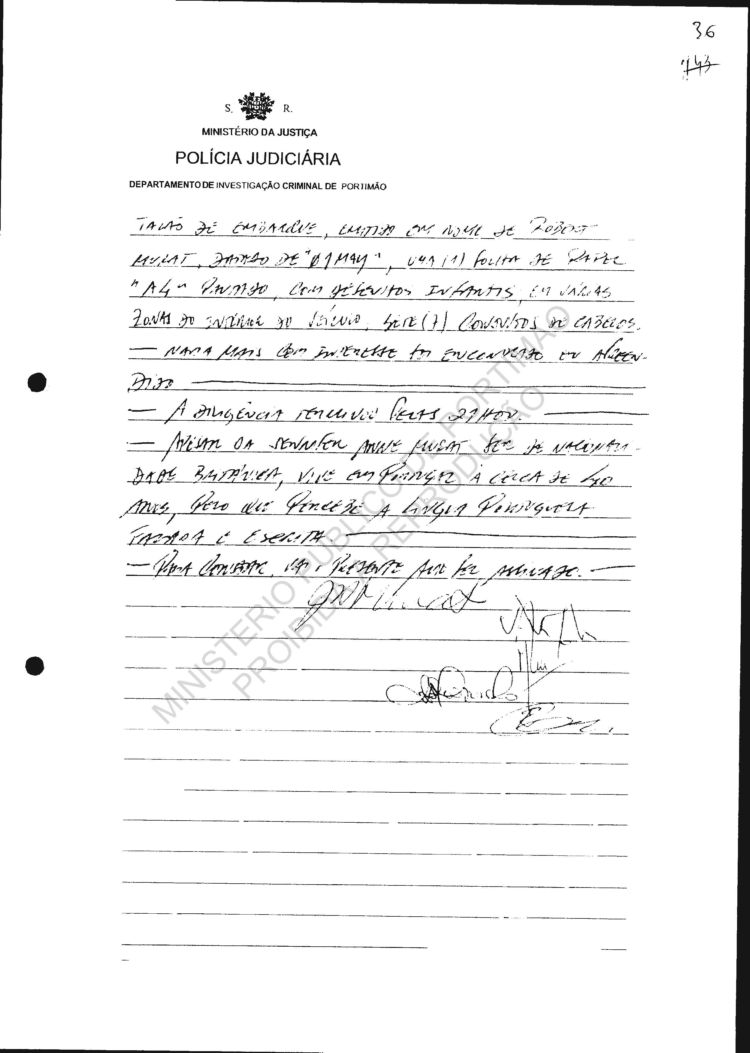 36
743
S. R.
MINISTÉRIO DA JUSTIÇA
POLÍCIA JUDICIÁRIA
DEPARTAMENTO DE INVESTIGAÇÃO CRIMINAL DE PORTIMÃO
TALÃO DE EMBARQUE, EMITIDO EM NOME DE ROBERT
MURAT, DATADO DE "01MAY", UMA (1) FOLHA DE PAPEL
"A4" PINTADO, COM DESENHOS INFANTIS, EM VÁRIAS
ZONAS DO INTERIOR DO VEÍCULO, SETE (7) CONJUNTOS DE CABELOS.
— NADA MAIS COM INTERESSE FOI ENCONTRADO OU APREEN-
DIDO —
— A DILIGÊNCIA TERMINOU PELAS
— APESAR DA JENNIFER ANNE MURAT SER DE NACIONALI-
DADE BRITÂNICA, VIVE EM PORTUGAL À CERCA DE 40
ANOS, PELO QUE PERCEBE A LÍNGUA PORTUGUESA
FALADA E ESCRITA. —
— PARA CONSTAR, VAI O PRESENTE AUTO SER ASSINADO. —
MINISTÉRIO PÚBLICO DE PORTIMÃO
PROIBIDA A REPRODUÇÃO